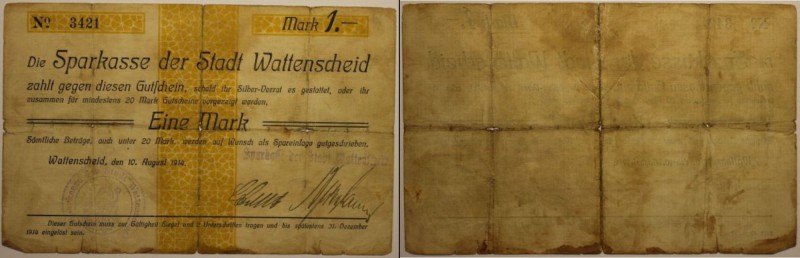 No 3421 Mark 1.—
Die Sparkasse der Stadt Wattenscheid
zahlt gegen diesen Gutschein, sobald ihr Silber-Vorrat es gestattet, oder ihr
zusammen für mindestens 20 Mark Gutscheine vorgezeigt werden,
Eine Mark
Sämtliche Beträge, auch unter 20 Mark, werden auf Wunsch als Spareinlage gutgeschrieben.
Wattenscheid, den 10. August 1914.
Sparkasse der Stadt Wattenscheid
Dieser Gutschein muss zur Gültigkeit Siegel und 2 Unterschriften tragen und bis spätestens 31. Dezember
1914 eingelöst sein.